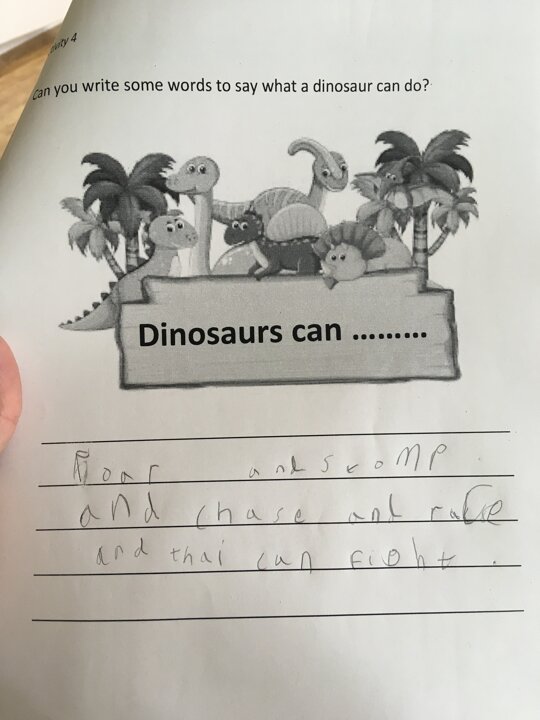 tivity 4
Can you write some words to say what a dinosaur can do?
Dinosaurs can .........
Roar and stomp
and chase and
and thai can fight.